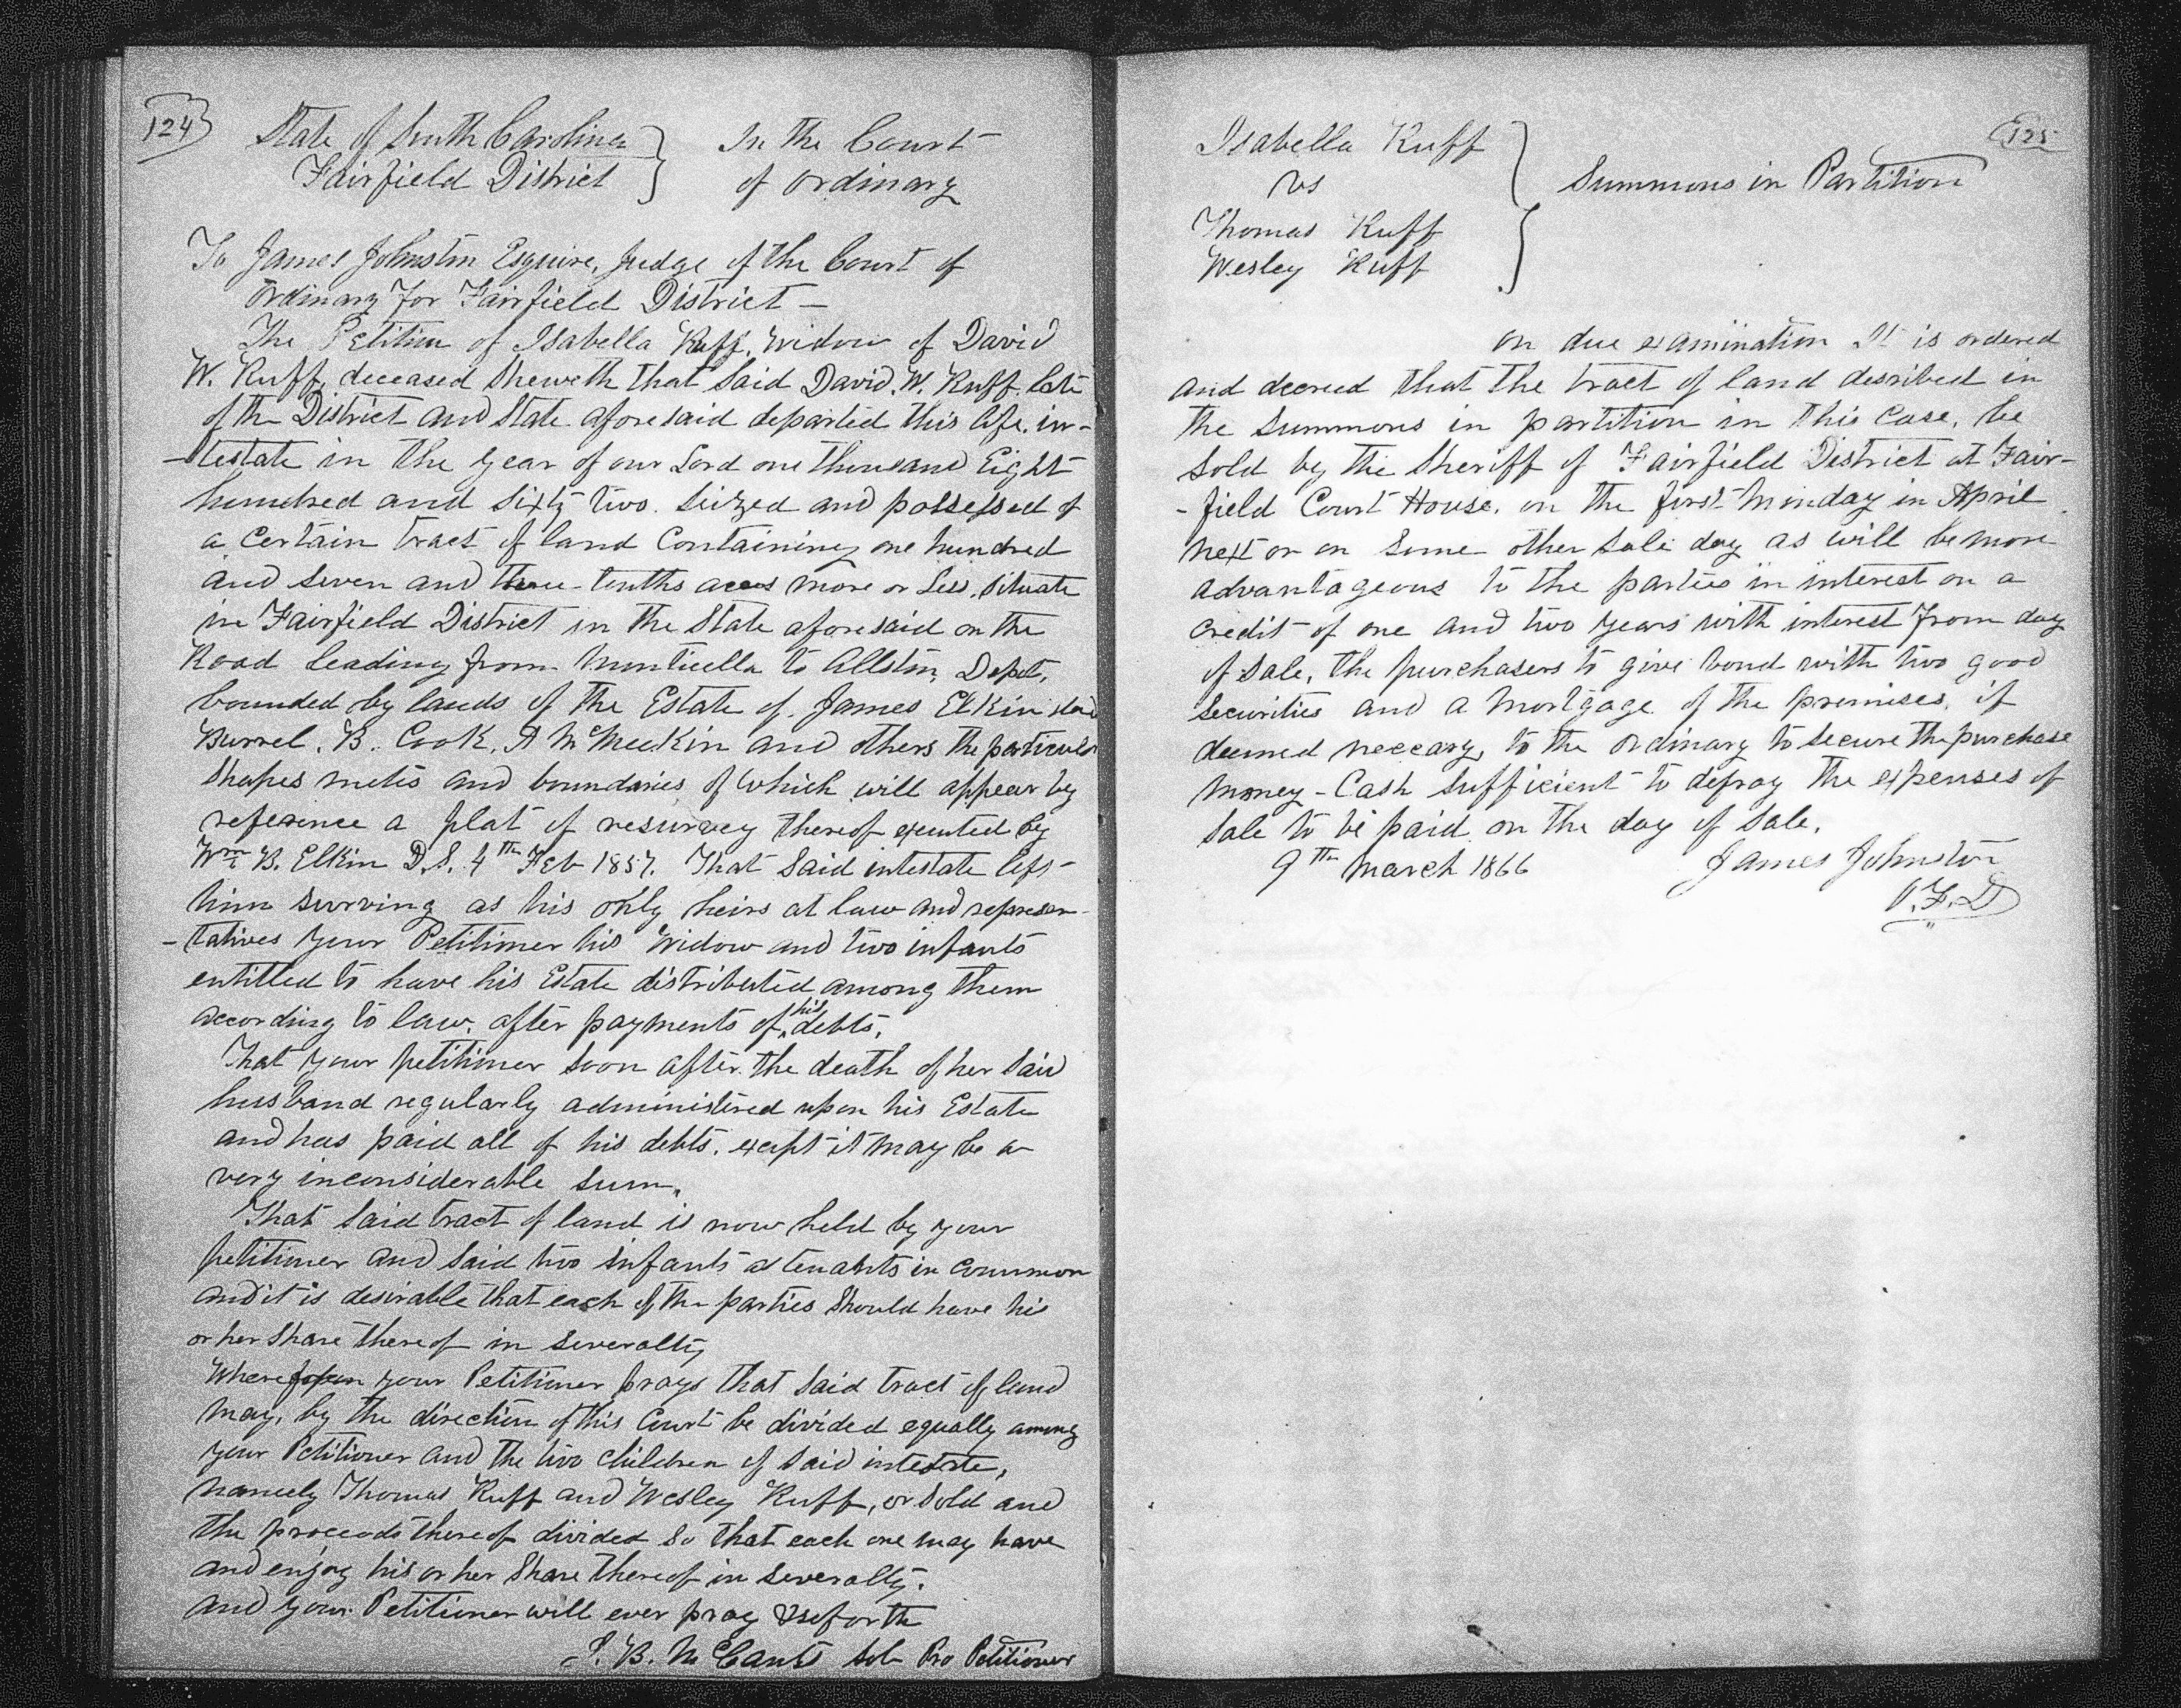 124
State of South Carolina } In the Court
Fairfield District } of ordinary
To James Johnston Esquire, Judge of the Court of
Ordinary for Fairfield District —
The Petition of Isabella Ruff, widow of David
W. Ruff, deceased Sheweth that Said David. W. Ruff. late
of the District and State aforesaid departed this life, in-
-testate in the year of our Lord one thousand Eight
hundred and Sixty two. Seized and possessed of
a Certain tract of land Containing one hundred
and Seven and three-tenths acres more or Less, Situate
in Fairfield District in the State aforesaid on the
Road leading from Monticello to Allston, Depot,
bounded by lands of the Estate of James Elkin
Burrel. B. Cook, A McMeekin and others the particular
Shapes metes and boundaries of which will appear by
reference a plat of resurvey thereof executed by
Wm B. Elkin D.S. 4th Feb 1857. That Said intestate left
him surving as his only heirs at law and represen-
-tatives your Petitioner his Widow and two infants
entitled to have his Estate distributed among them
according to law, after payments of his debts.
That your petitioner soon after the death of her Said
husband regularly administered upon his Estate
and has paid all of his debts, except it may be a
very inconsiderable Sum.
That Said tract of land is now held by your
petitioner and Said two infants as tenants in Common
and it is desirable that each of the parties Should have his
or her Share thereof in Severalty
Where your Petitioner prays that Said tract of land
may, by the direction of this Court be divided equally among
your Petitioner and the two Children of Said intestate,
namely Thomas Ruff and Wesley Ruff, or Sold and
the proceeds thereof divided So that each one may have
and enjoy his or her Share thereof in Severalty.
And your Petitioner will ever pray &soforth
J. B. McCants Sol Pro Petitioner
125
Isabella Ruff }
vs } Summons in Partition
Thomas Ruff }
Wesley Ruff }
on due examination It is ordered
and decreed that the tract of land described in
the Summons in partition in this Case, be
Sold by the Sheriff of Fairfield District at Fair-
-field Court House, on the first Monday in April
next or on Some other Sale day as will be more
advantageous to the parties in interest on a
Credit of one and two years with interest from day
of Sale, the purchasers to give bond with two good
Securities and a Mortgage of the premises, if
deemed neccary, to the Ordinary to Secure the purchase
money - Cash Sufficient to defray the expenses of
Sale to be paid on the day of Sale.
9th March 1866 James Johnston
O.F.D